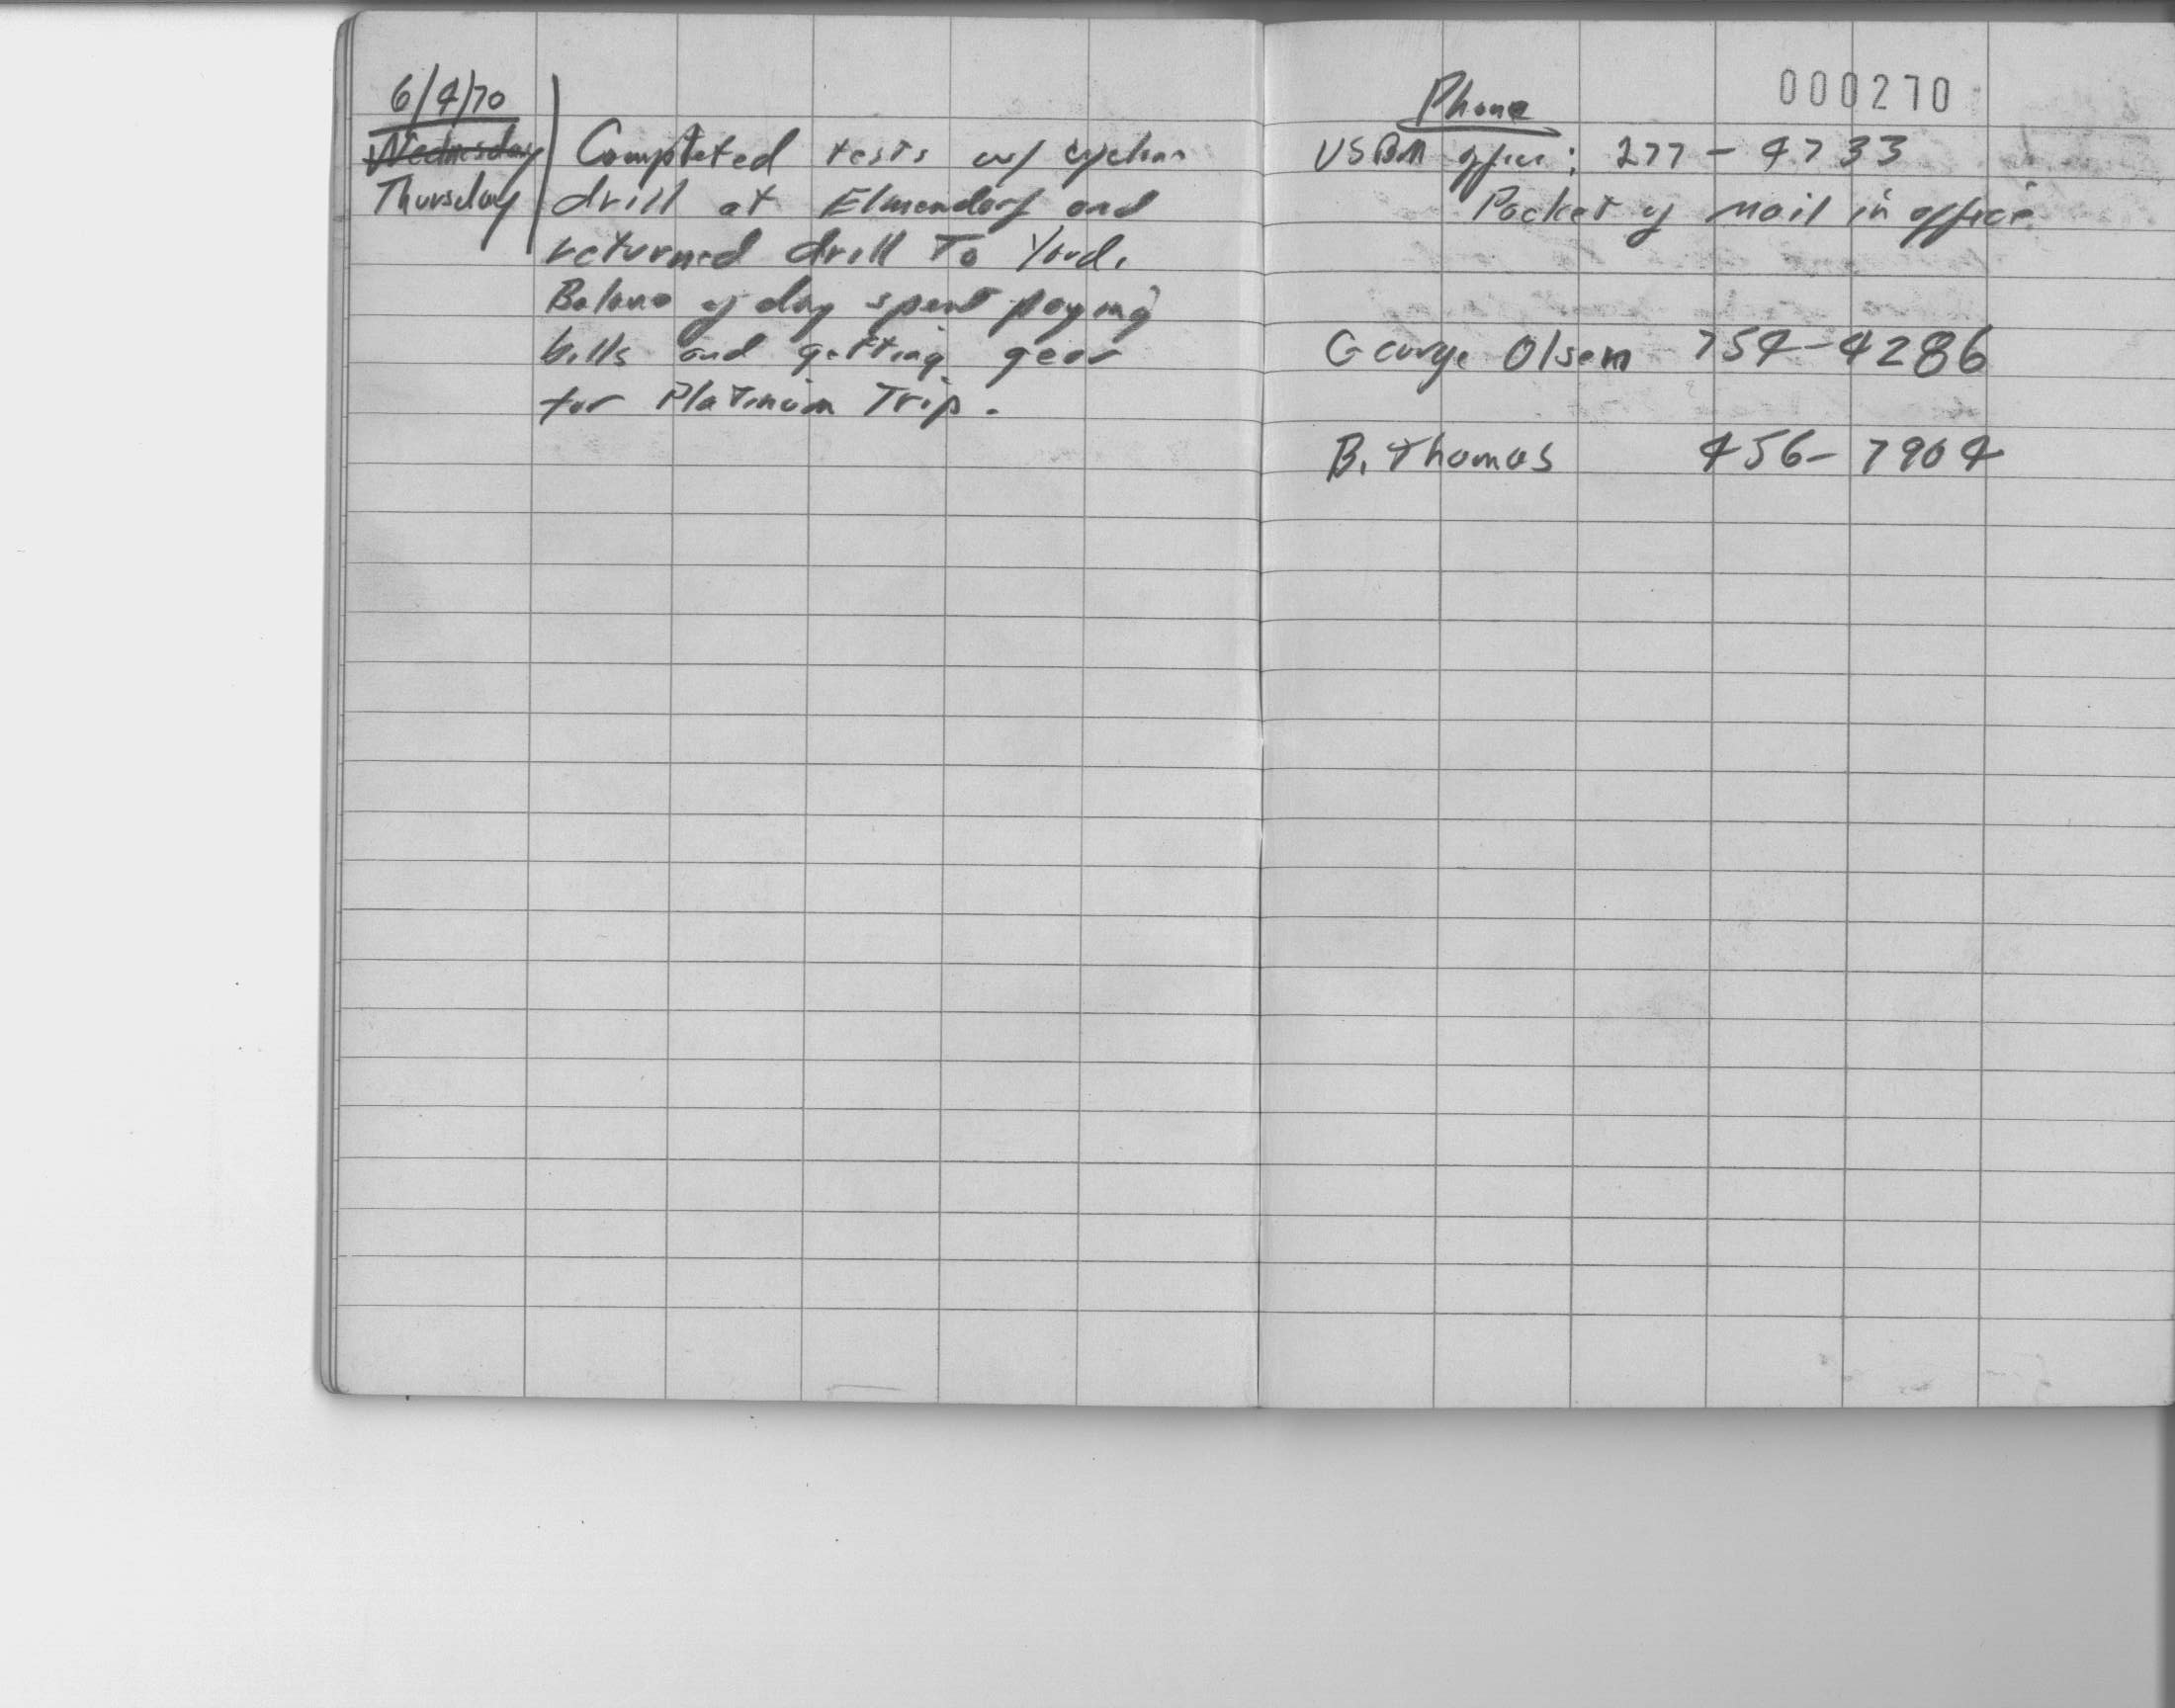 6/4/70
Wednesday
Thursday
Completed tests w/ cyclone
drill at Elmendorf and
returned drill To Yard.
Balance of day spent paying
bills and getting gear
for Platinum Trip.
000270
Phone
USBM office: 277-4733
Packet of mail in office.
George Olsen 754-4286
B. Thomas 456-7904